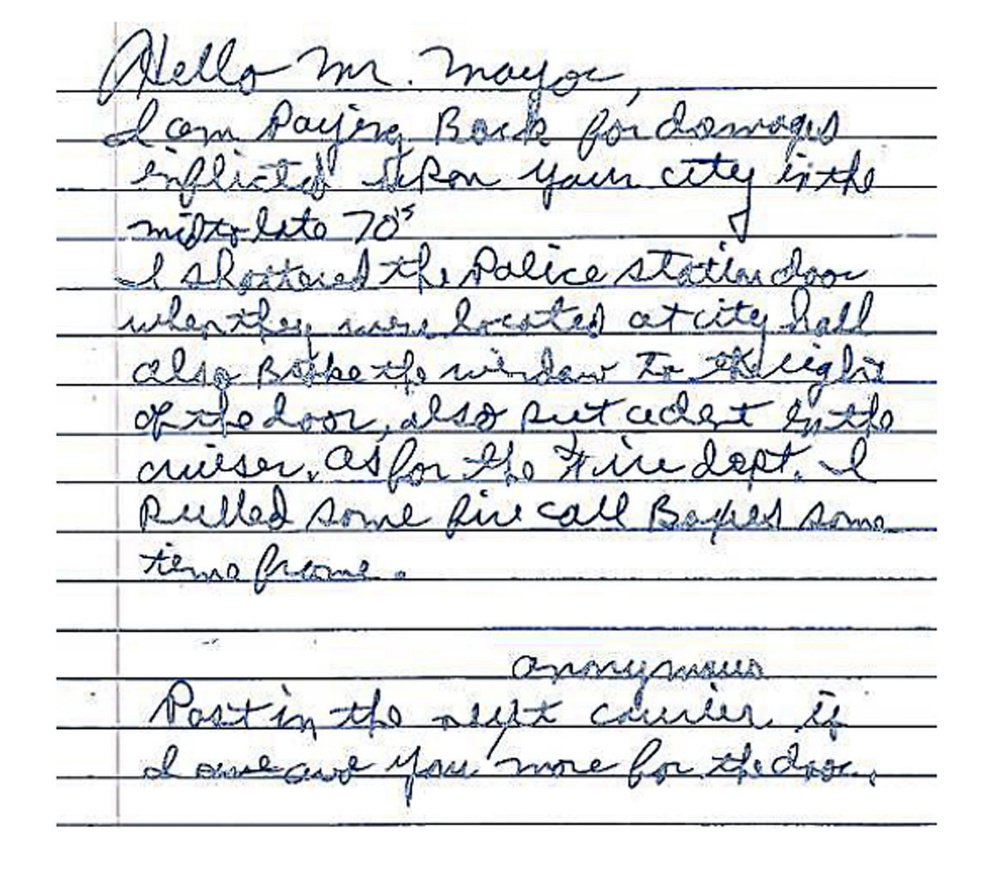 Hello Mr. Mayor,
I am Paying Back for damages
inflicted upon your city in the
mid to late 70's
I shattered the Police station door
when they were located at city hall
also Broke the window To the right
of the door, also put a dent in the
cruiser. As for the Fire dept. I
Pulled some fire call Boxes same
time frame.
anonymous
Post in the next courier if
I owe you more for the door.